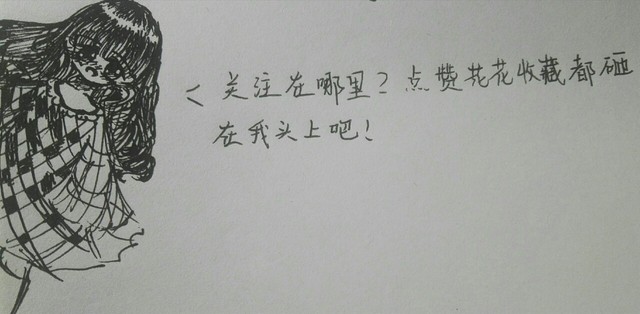 <关注在哪里?点赞花花收藏都砸
在我头上吧!